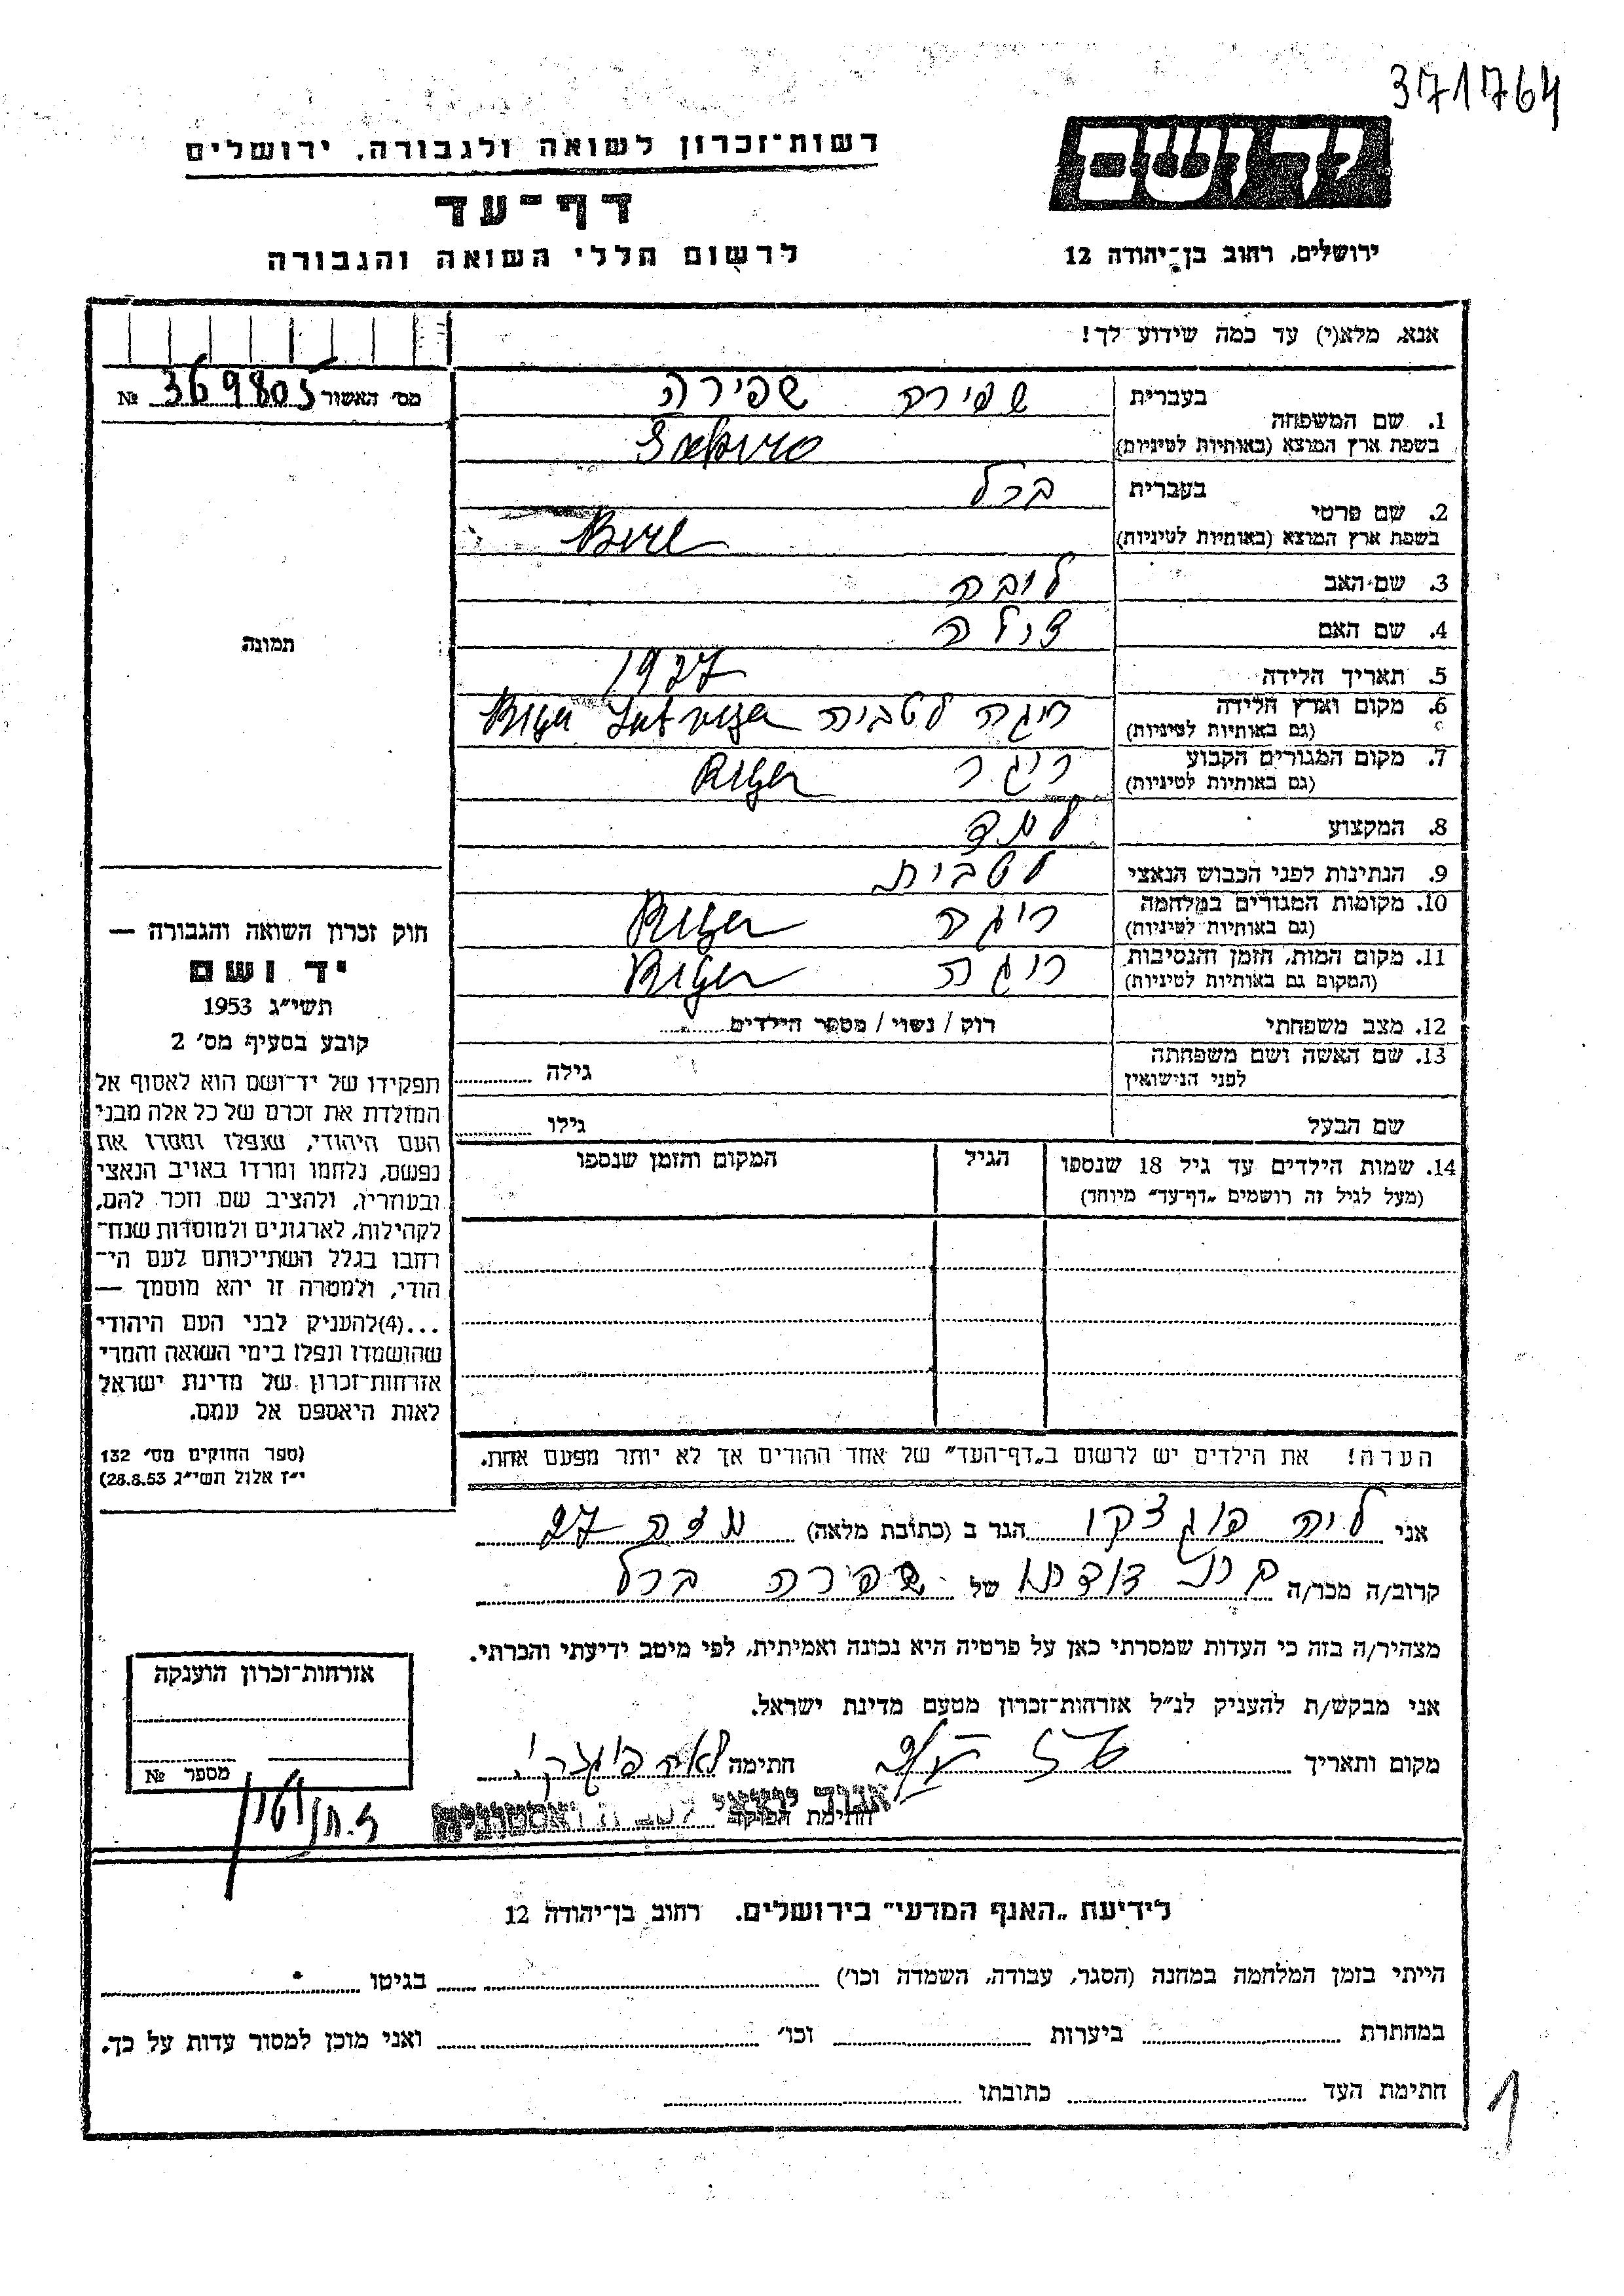 371764
יד ושם
ירושלים, רחוב בן־יהודה 12
רשות־זכרון לשואה ולגבורה, ירושלים
דף־עד
לרשום חללי השואה והגבורה
אנא, מלא(י) עד כמה שידוע לך!
מס׳ האשור 369805 №
1. שם המשפחה
בעברית שפירה שפירה
בשפת ארץ המוצא (באותיות לטיניות)
2. שם פרטי
בעברית ברל
בשפת ארץ המוצא (באותיות לטיניות) Berl
3. שם האב ליבה
4. שם האם
5. תאריך הלידה 1927
6. מקום וארץ הלידה ריגה לטביה
(גם באותיות לטיניות)
7. מקום המגורים הקבוע ריגה
(גם באותיות לטיניות)
8. המקצוע
9. הנתינות לפני הכבוש הנאצי לטבית
10. מקומות המגורים במלחמה ריגה
(גם באותיות לטיניות)
11. מקום המות, הזמן והנסיבות ריגה
(המקום גם באותיות לטיניות)
12. מצב משפחתי רוק / נשוי / מספר הילדים
13. שם האשה ושם משפחתה
לפני הנישואין גילה
שם הבעל גילו
14. שמות הילדים עד גיל 18 שנספו הגיל המקום והזמן שנספו
(מעל לגיל זה רושמים „דף־עד״ מיוחד)
הערה! את הילדים יש לרשום ב„דף־העד״ של אחד ההורים אך לא יותר מפעם אחת.
תמונה
חוק זכרון השואה והגבורה —
יד ושם
תשי״ג 1953
קובע בסעיף מס׳ 2
תפקידו של יד־ושם הוא לאסוף אל
המולדת את זכרם של כל אלה מבני
העם היהודי, שנפלו ומסרו את
נפשם, נלחמו ומרדו באויב הנאצי
ובעוזריו, ולהציב שם וזכר להם,
לקהילות, לארגונים ולמוסדות שנח־
רבו בגלל השתייכותם לעם הי־
הודי, ולמטרה זו יהא מוסמך —
...(4)להעניק לבני העם היהודי
שהושמדו ונפלו בימי השואה והמרי
אזרחות־זכרון של מדינת ישראל
לאות היאספם אל עמם.
(ספר החוקים מס׳ 132
י״ז אלול תשי״ג 28.8.53)
אני הגר ב (כתובת מלאה) מצה 27
קרוב/ה מכר/ה בת דודתו של שפירה ברל
מצהיר/ה בזה כי העדות שמסרתי כאן על פרטיה היא נכונה ואמיתית, לפי מיטב ידיעתי והכרתי.
אני מבקש/ת להעניק לנ״ל אזרחות־זכרון מטעם מדינת ישראל.
מקום ותאריך חתימה
חתימת הפוקד
אגוד יוצאי לטביה ואסטוניה
אזרחות־זכרון הוענקה
מספר №
לידיעת „האגף המדעי״ בירושלים. רחוב בן־יהודה 12
הייתי בזמן המלחמה במחנה (הסגר, עבודה, השמדה וכו׳) בגיטו
במחתרת ביערות וכו׳ ואני מוכן למסור עדות על כך.
חתימת העד כתובתו
1